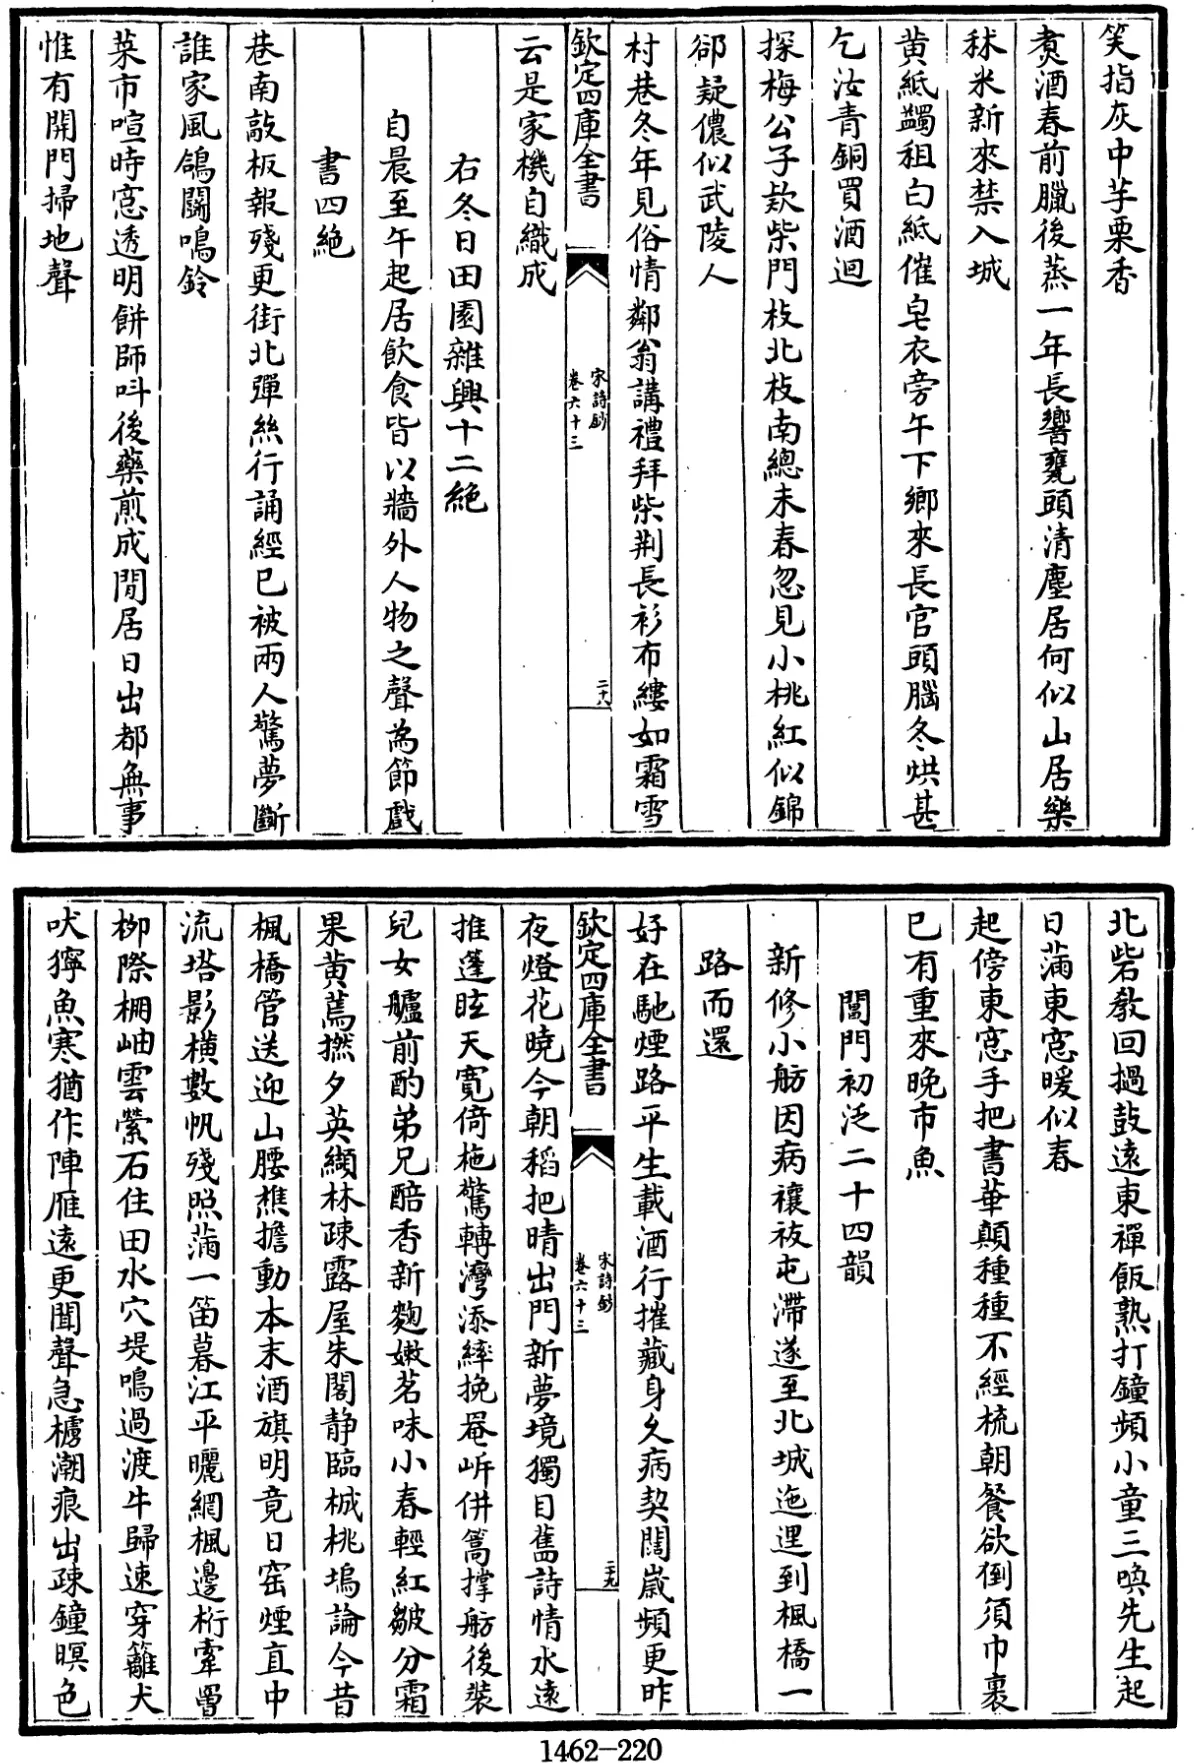 笑指灰中芋栗香
煑酒春前臘後蒸一年長響甕頭清塵居何似山居樂
秫米新來禁入城
黄紙蠲租白紙催皂衣旁午下鄉來長官頭腦冬烘甚
乞汝青銅買酒迴
探梅公子欵柴門枝北枝南總未春忽見小桃紅似錦
郤疑儂似武陵人
村巷冬年見俗情鄰翁講禮拜柴荆長衫布縷如霜雪
欽定四庫全書
宋詩鈔
卷六十三
二十八
云是家機自織成
右冬日田園雜興十二絶
自晨至午起居飲食皆以牆外人物之聲為節戲
書四絶
巷南敲板報殘更街北彈絲行誦經已被兩人驚夢斷
誰家風鴿鬭鳴鈴
菜市喧時窓透明餅師叫後藥煎成閒居日出都無事
惟有開門掃地聲
北砦教回撾鼓遠東禪飯熟打鐘頻小童三喚先生起
日滿東窓暖似春
起傍東窓手把書華顛種種不經梳朝餐欲倒須巾裹
已有重來晚市魚
閶門初泛二十四韻
新修小舫因病禳祓屯滯遂至北城迤邐到楓橋一
路而還
好在馳煙路平生載酒行摧藏身久病契闊嵗頻更昨
欽定四庫全書
宋詩鈔
卷六十三
二十九
夜燈花曉今朝稻把晴出門新夢境獨目舊詩情水遠
推蓬眩天寛倚柂驚轉灣添縴挽罨㟁併篙撑舫後裝
兒女艫前酌弟兄醅香新麴嫩茗味小春輕紅皺分霜
果黄蔫撚夕英纈林疎露屋朱閣静臨城桃塢論今昔
楓橋管送迎山腰樵擔動木末酒旗明竟日窑煙直中
流塔影横數帆殘照滿一笛暮江平曬網楓邊桁牽罾
栁際棚岫雲縈石住田水穴堤鳴過渡牛歸速穿籬犬
吠獰魚寒猶作陣雁遠更聞聲急櫓潮痕出疎鐘暝色
1462-220